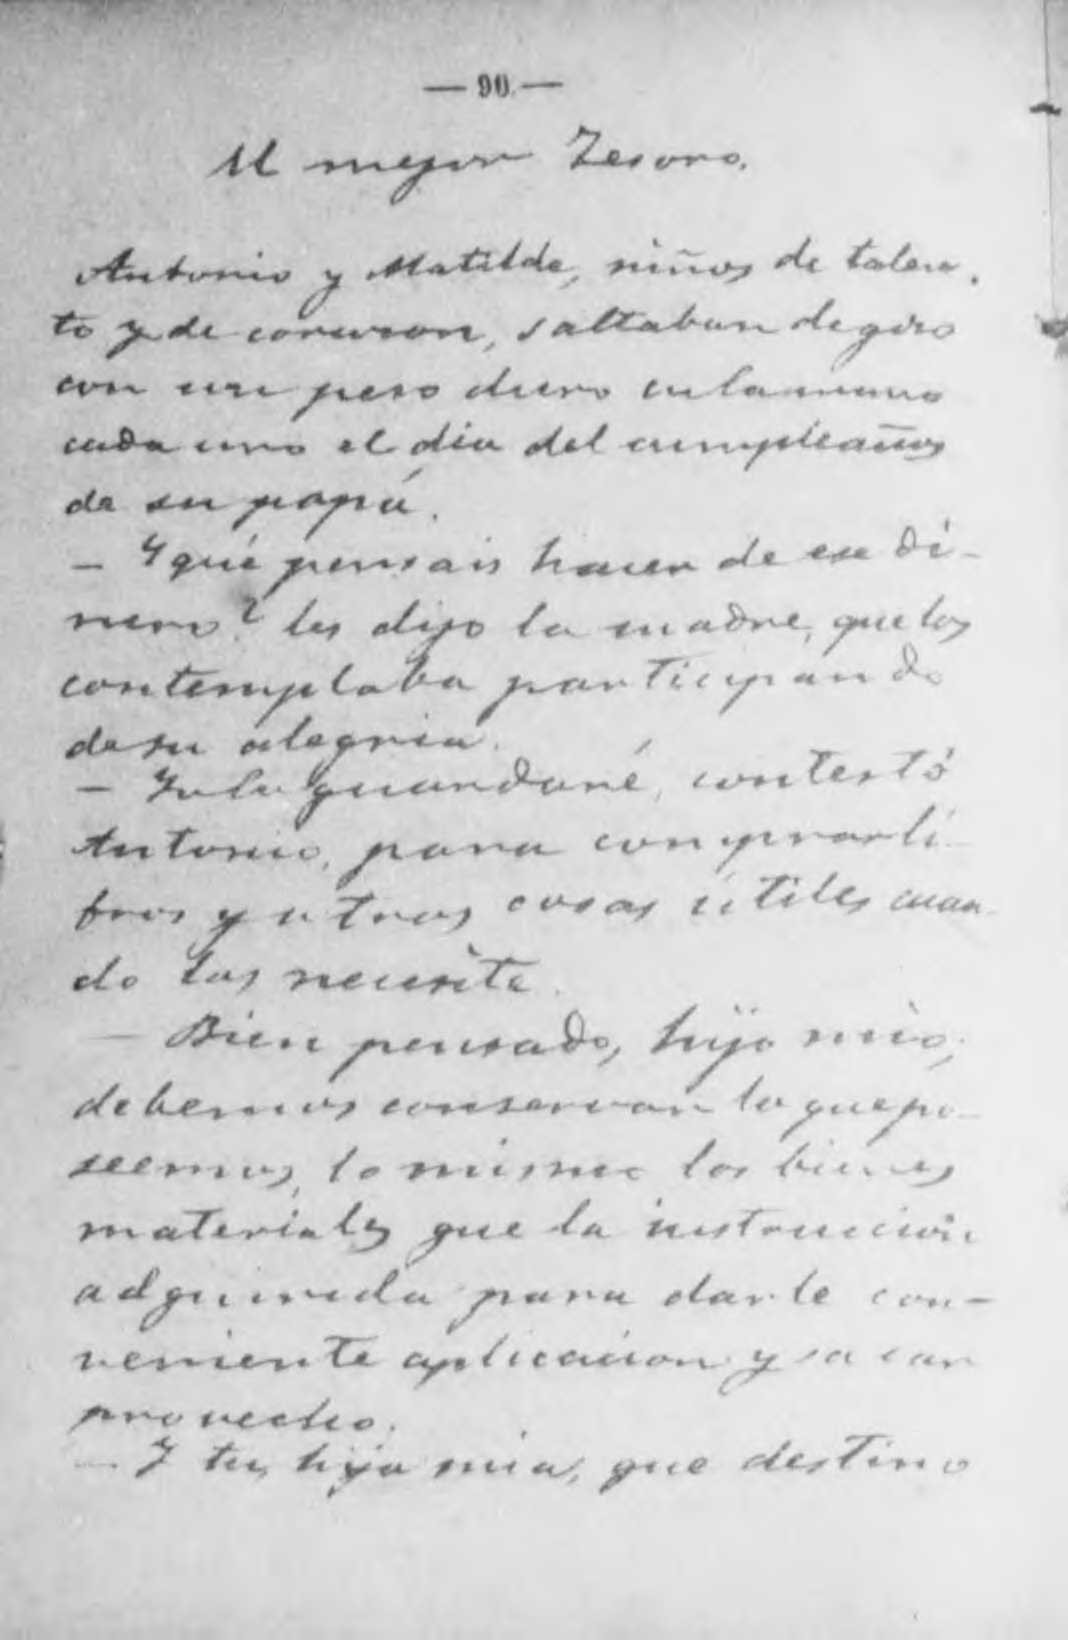 — 90 —
El mejor Tesoro.
Antonio y Matilde, niños de talen-
to y de corazon, saltaban de gozo
con un peso duro en la mano
cada uno el dia del cumpleaños
de su papá.
— Y qué pensais hacer de ese di-
nero? les dijo la madre, que los
contemplaba participando
de su alegria.
— Yo lo guardaré, contestó
Antonio, para comprar li-
bros y otras cosas útiles cuan-
do las necesite.
— Bien pensado, hijo mio;
debemos conservar lo que po-
seemos, lo mismo los bienes
materiales que la instruccion
adquirida para darle con-
veniente aplicacion y sacar
provecho.
— Y tu, hija mia, que destino